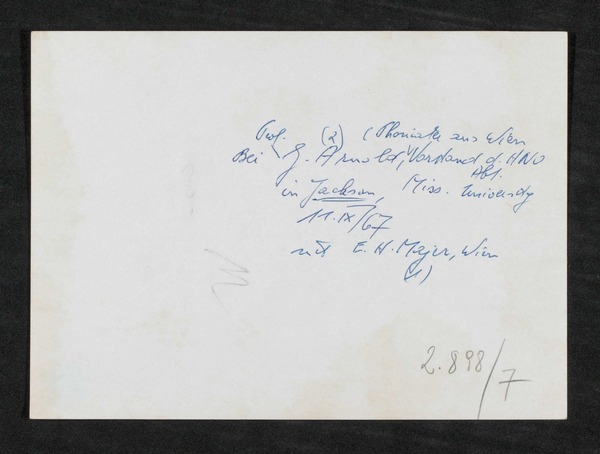 Prof. (2) (Phoniater aus Wien
Bei G. Arnold, Vorstand d. HNO
Abt.
in Jackson, Miss. University
11.IX/67
mit E. H. Majer, Wien
(1)
2.898/7